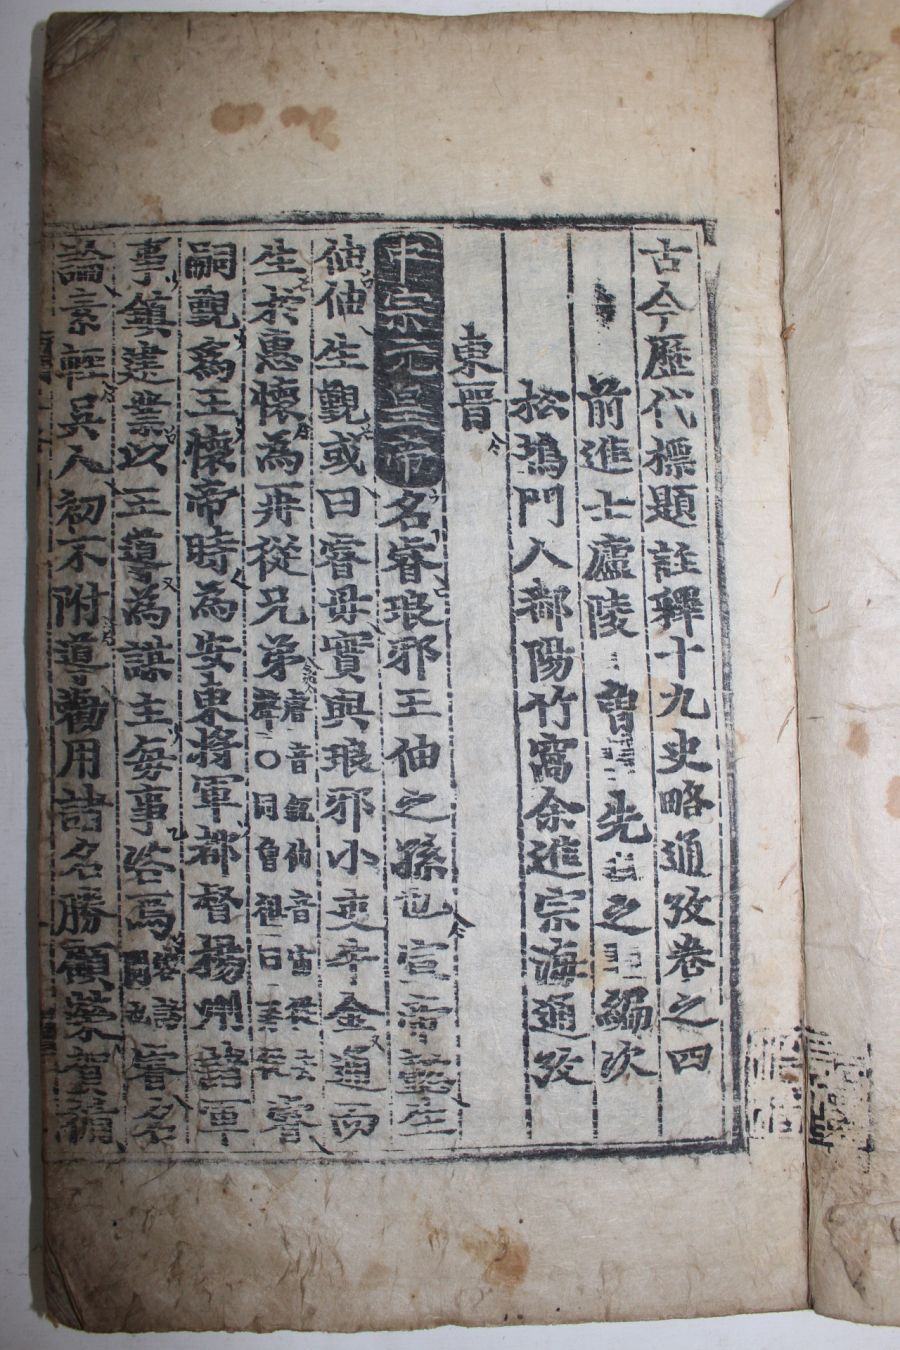 古今歷代標題註釋十九史略通攷卷之四
前進士廬陵 曾先之編次
松塢門人鄱陽竹窩余進宗海通攷
東晉
中宗元皇帝名睿琅邪王伷之孫也宣帝懿生
伷伷生覲或曰睿母實與琅邪小吏牛金通而
生於惠懷爲再從兄弟 睿
嗣覲爲王懷帝時爲安東將軍都督揚州諸軍
事鎭建業以王導爲謀主每事咨焉 睿名
論素輕吳人初不附導勸用諸名勝顧榮